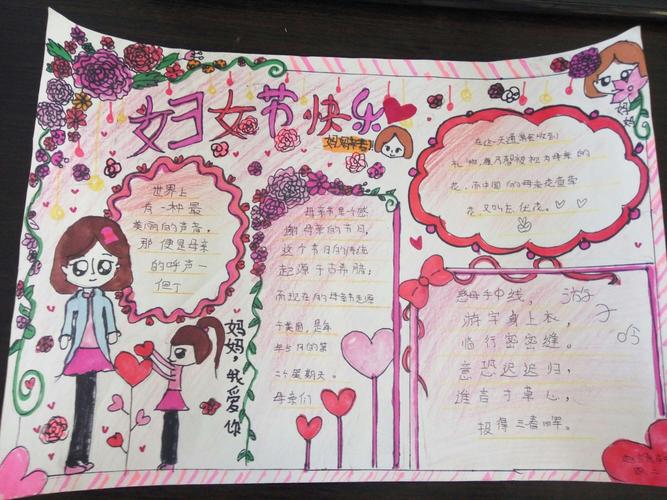 妇女节快乐
妈妈
世界上
有一种最
美丽的声音,
那便是母亲
的呼声一
但丁
母亲节是个感
谢母亲的节日,
这个节日的传统
起源于古希腊;
而现在的母亲节起源
于美国,是年
年5月的第
二个星期天。
母亲们
在这一天通常会收到
礼物,康乃馨被视为母亲的
花,而中国的母亲花是萱
花,又叫忘忧花。
妈妈,我爱你
慈母手中线,
游子身上衣,
临行密密缝。
意恐迟迟归,
谁言寸草心,
报得三春晖。
游子吟